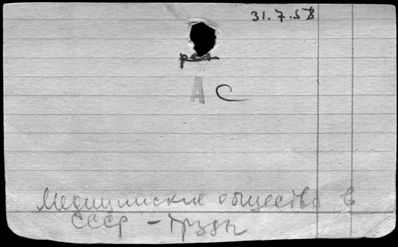 31.7.58
А С
Медицинские общества в
СССР - Труды